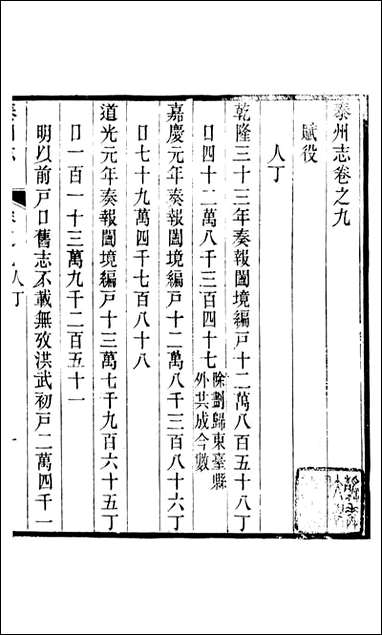 泰州志卷之九
賦役
人丁
乾隆三十三年奏報闔境編戸十二萬八百五十八丁
口四十二萬八千三百四十七除劃歸東臺縣
外共成今數
嘉慶元年奏報闔境編戸十二萬八千三百八十六丁
口七十九萬四千七百八十八
道光元年奏報闔境編戸十三萬七千九百六十五丁
口一百一十三萬九千二百五十一
明以前戸口舊志不載無攷洪武初戸二萬四千一
人丁